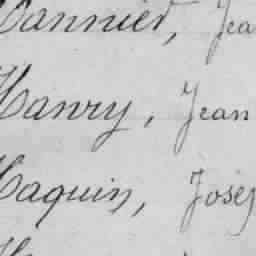 Hannier, Jea
Hanry, Jean
Haquin, Josep